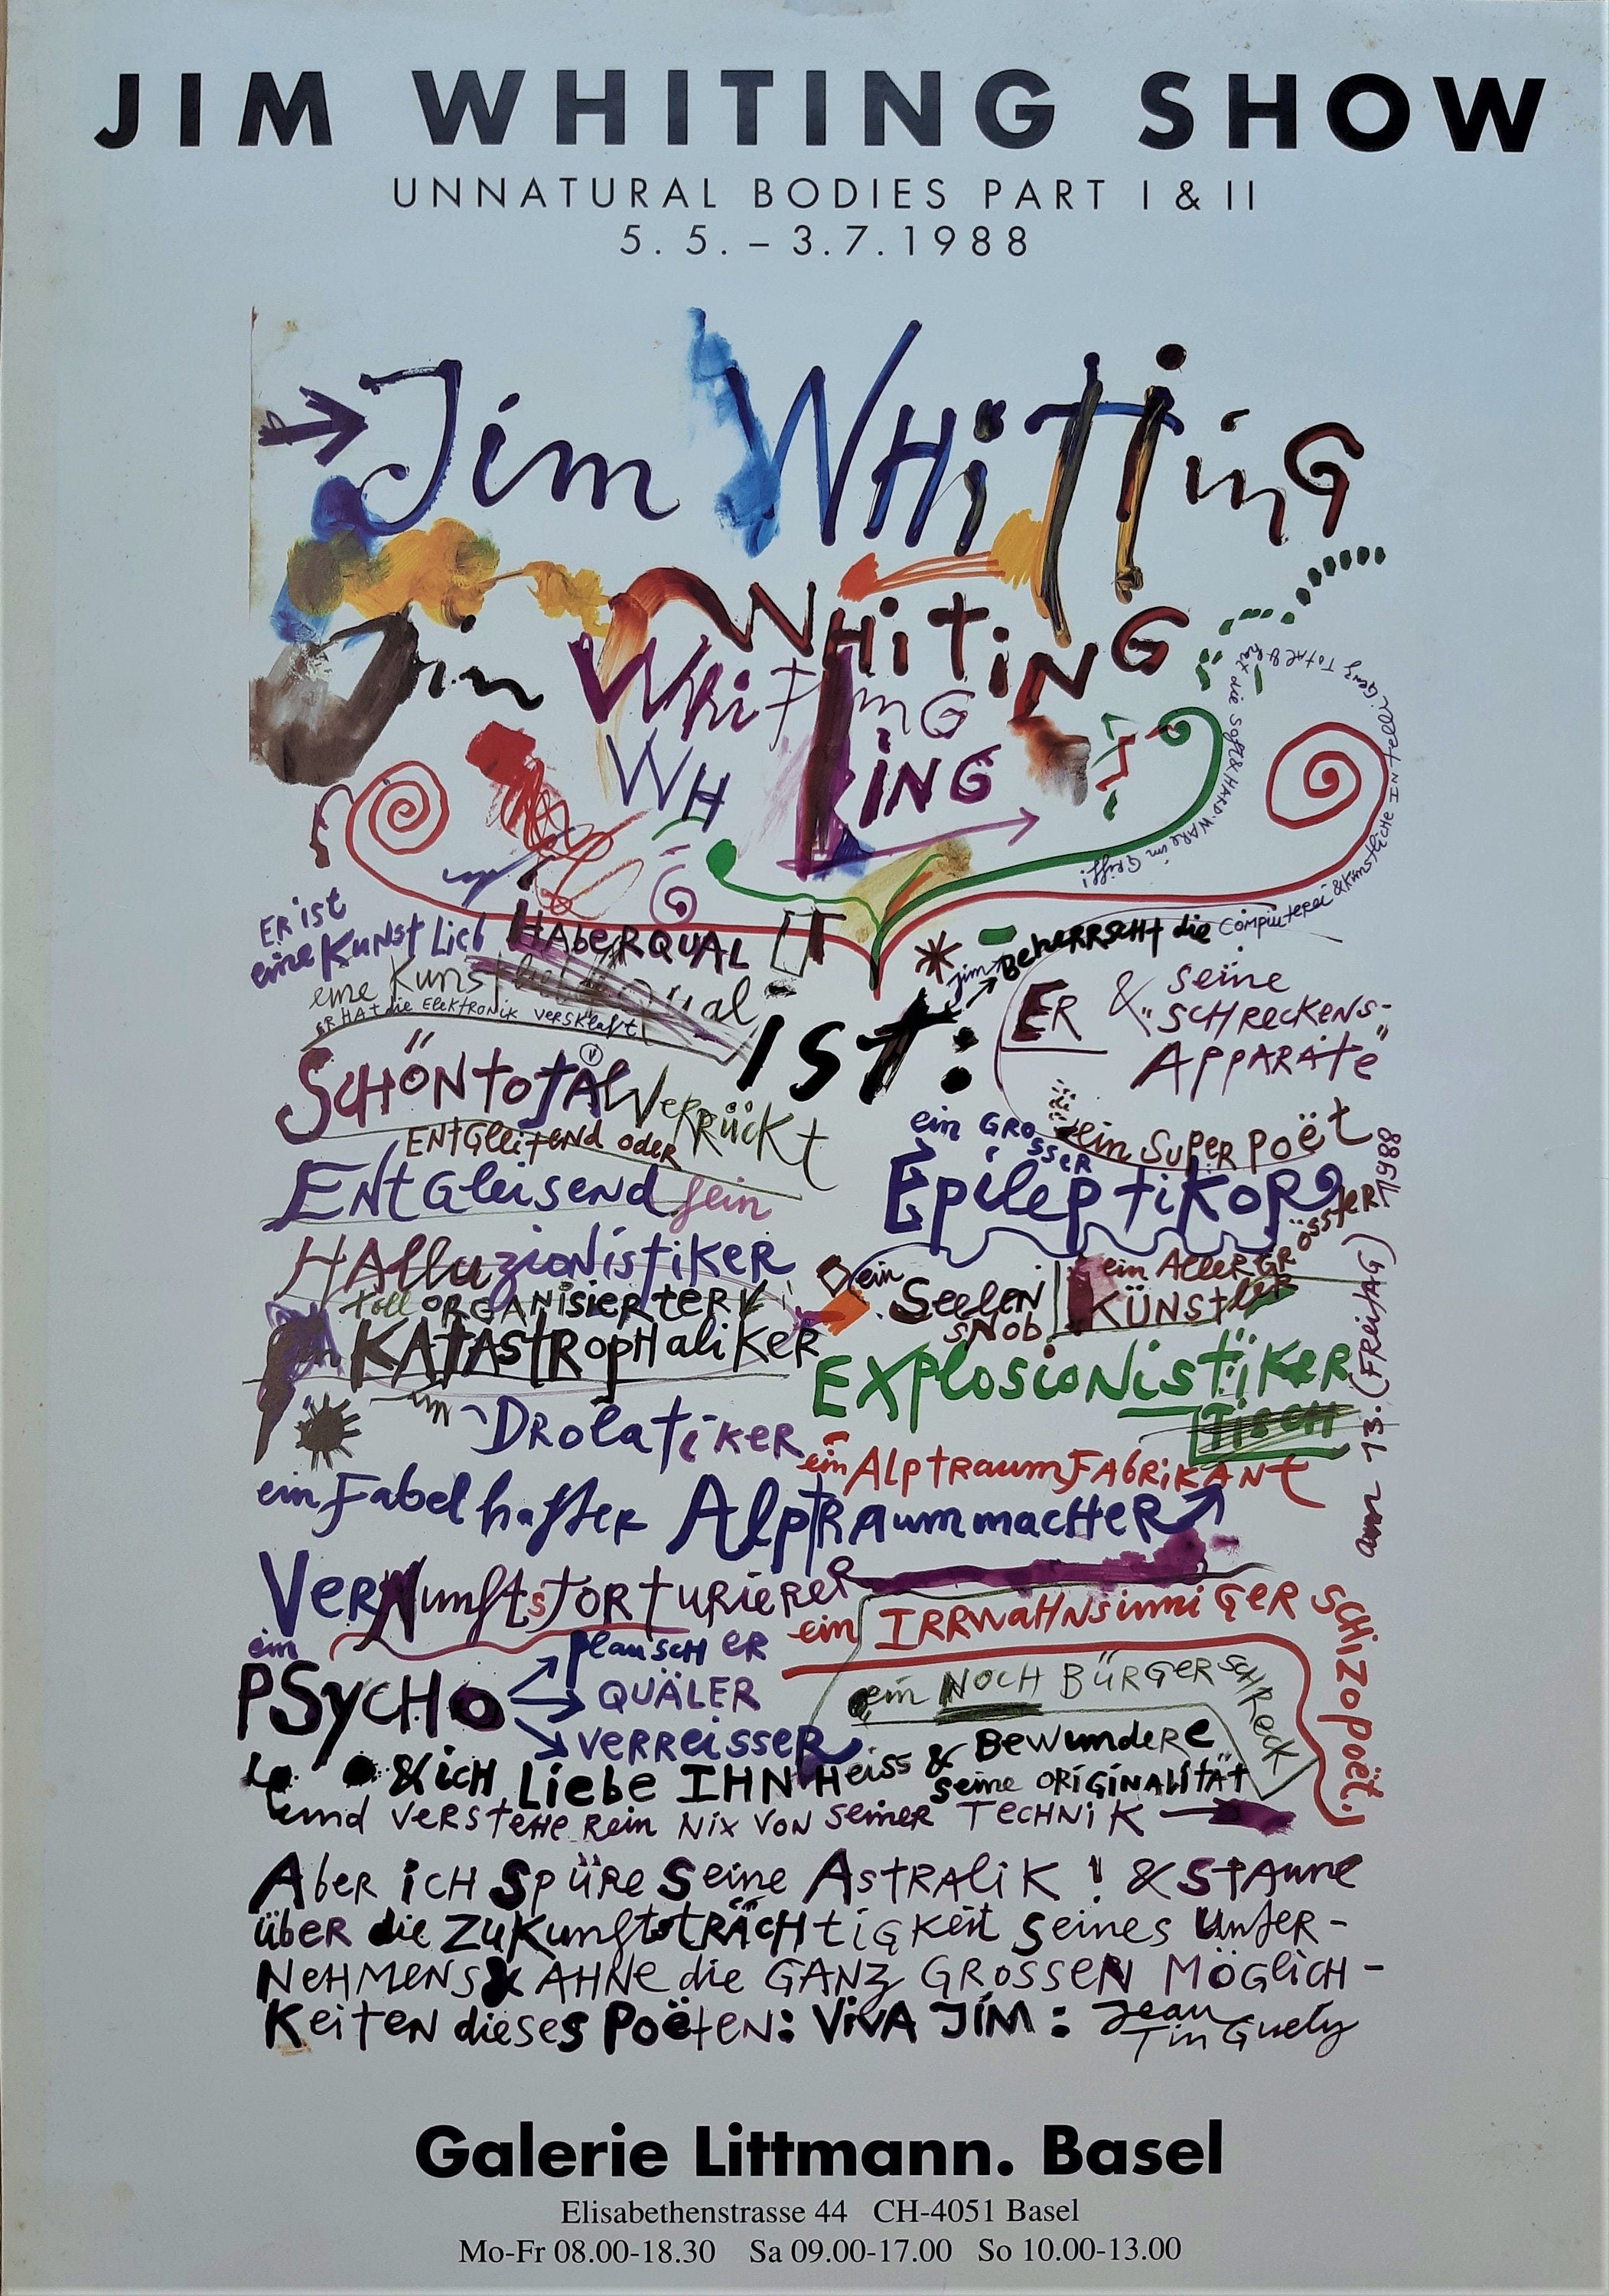 JIM WHITING SHOW
UNNATURAL BODIES PART I & II
5. 5. – 3.7.1988
Jim WHiTTinG
Jim WHiTiNG
WhiTinG
WH iNG
ER ist
eine Kunst Lieb HAbeRQUAL iT
eine Kunst
ER HAt die ElektRoNik VERSKlaft
jim BeHERRScHt die Compüterei & künstliche INtelli-GenZ Total & hat die Soft & HARD-WARE im Griff i
iST:
ER & seine
"SCHReckENS-
APPARAte"
SCHÖN totAL VerRückt
ENtGleitend oder
ENtGleisend sein
ein GROSSER
ein SUPER POët
EpilepTikOR
HAlluzionistiKER
toll ORGANiSiERTER
KAtAStRopHaliKER
ein SeeleN
SNob
ein AllerGRössteR
KÜNStleR
EXPlosioNistiKER
TiSCH
DRolatiKER
ein AlptRaumFAbRiKANt
ein Fabelhafter AlptRaummacHeR
am 13. (FReitAG) 1988
VerNunftsTORTURieReR
ein IRRWAHNSinniGER SCHiZOPOët.
ein
PSYCHO
plauscH ER
QUÄLER
VERREiSSER
ein NOCH BÜRGERSCHReck
& icH Liebe IHN Heiss & BeWundeRe
seine ORiGiNAliTÄT
und VERSTeHe Rein Nix VON SeineR TecHNiK
AbeR icH SpüRe Seine AstRAliK ! & STAune
übeR die ZuKunftstRÄcHtiGKeit Seines UnteR-
NeHMeNS & AHNe die GANZ GROSSEN MöGlicH-
KeiTeN dieses Poëten: ViVA JiM : Jean
TinGuely
Galerie Littmann. Basel
Elisabethenstrasse 44 CH-4051 Basel
Mo-Fr 08.00-18.30 Sa 09.00-17.00 So 10.00-13.00